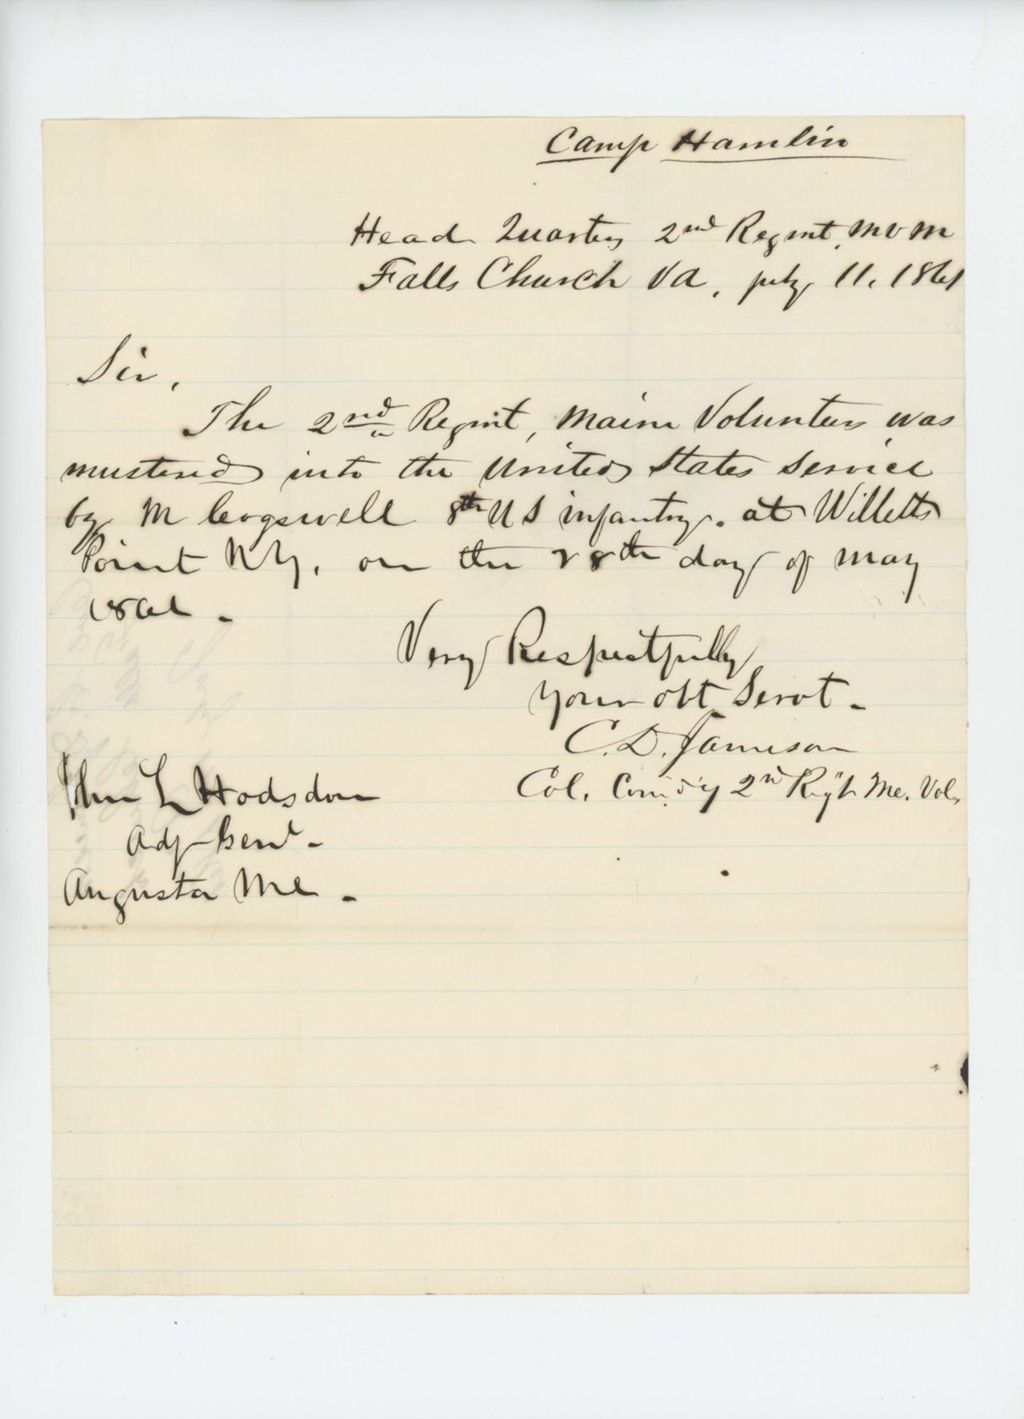 Camp Hamlin
Head Quarters 2nd Regmt, M V M
Falls Church Va, July 11, 1861
Sir,
The 2nd Regmt, Maine Volunteers was
mustered into the United States Service
by M Cogswell 8th U S infantry. at Willetts
Point N Y, on the 28th day of May
1861 -
Very Respectfully
your obt Servt -
C. D. Jameson
Col. Comd'g 2nd Reg't Me. Vols,
John L Hodsdon
Adj Genl -
Augusta Me -